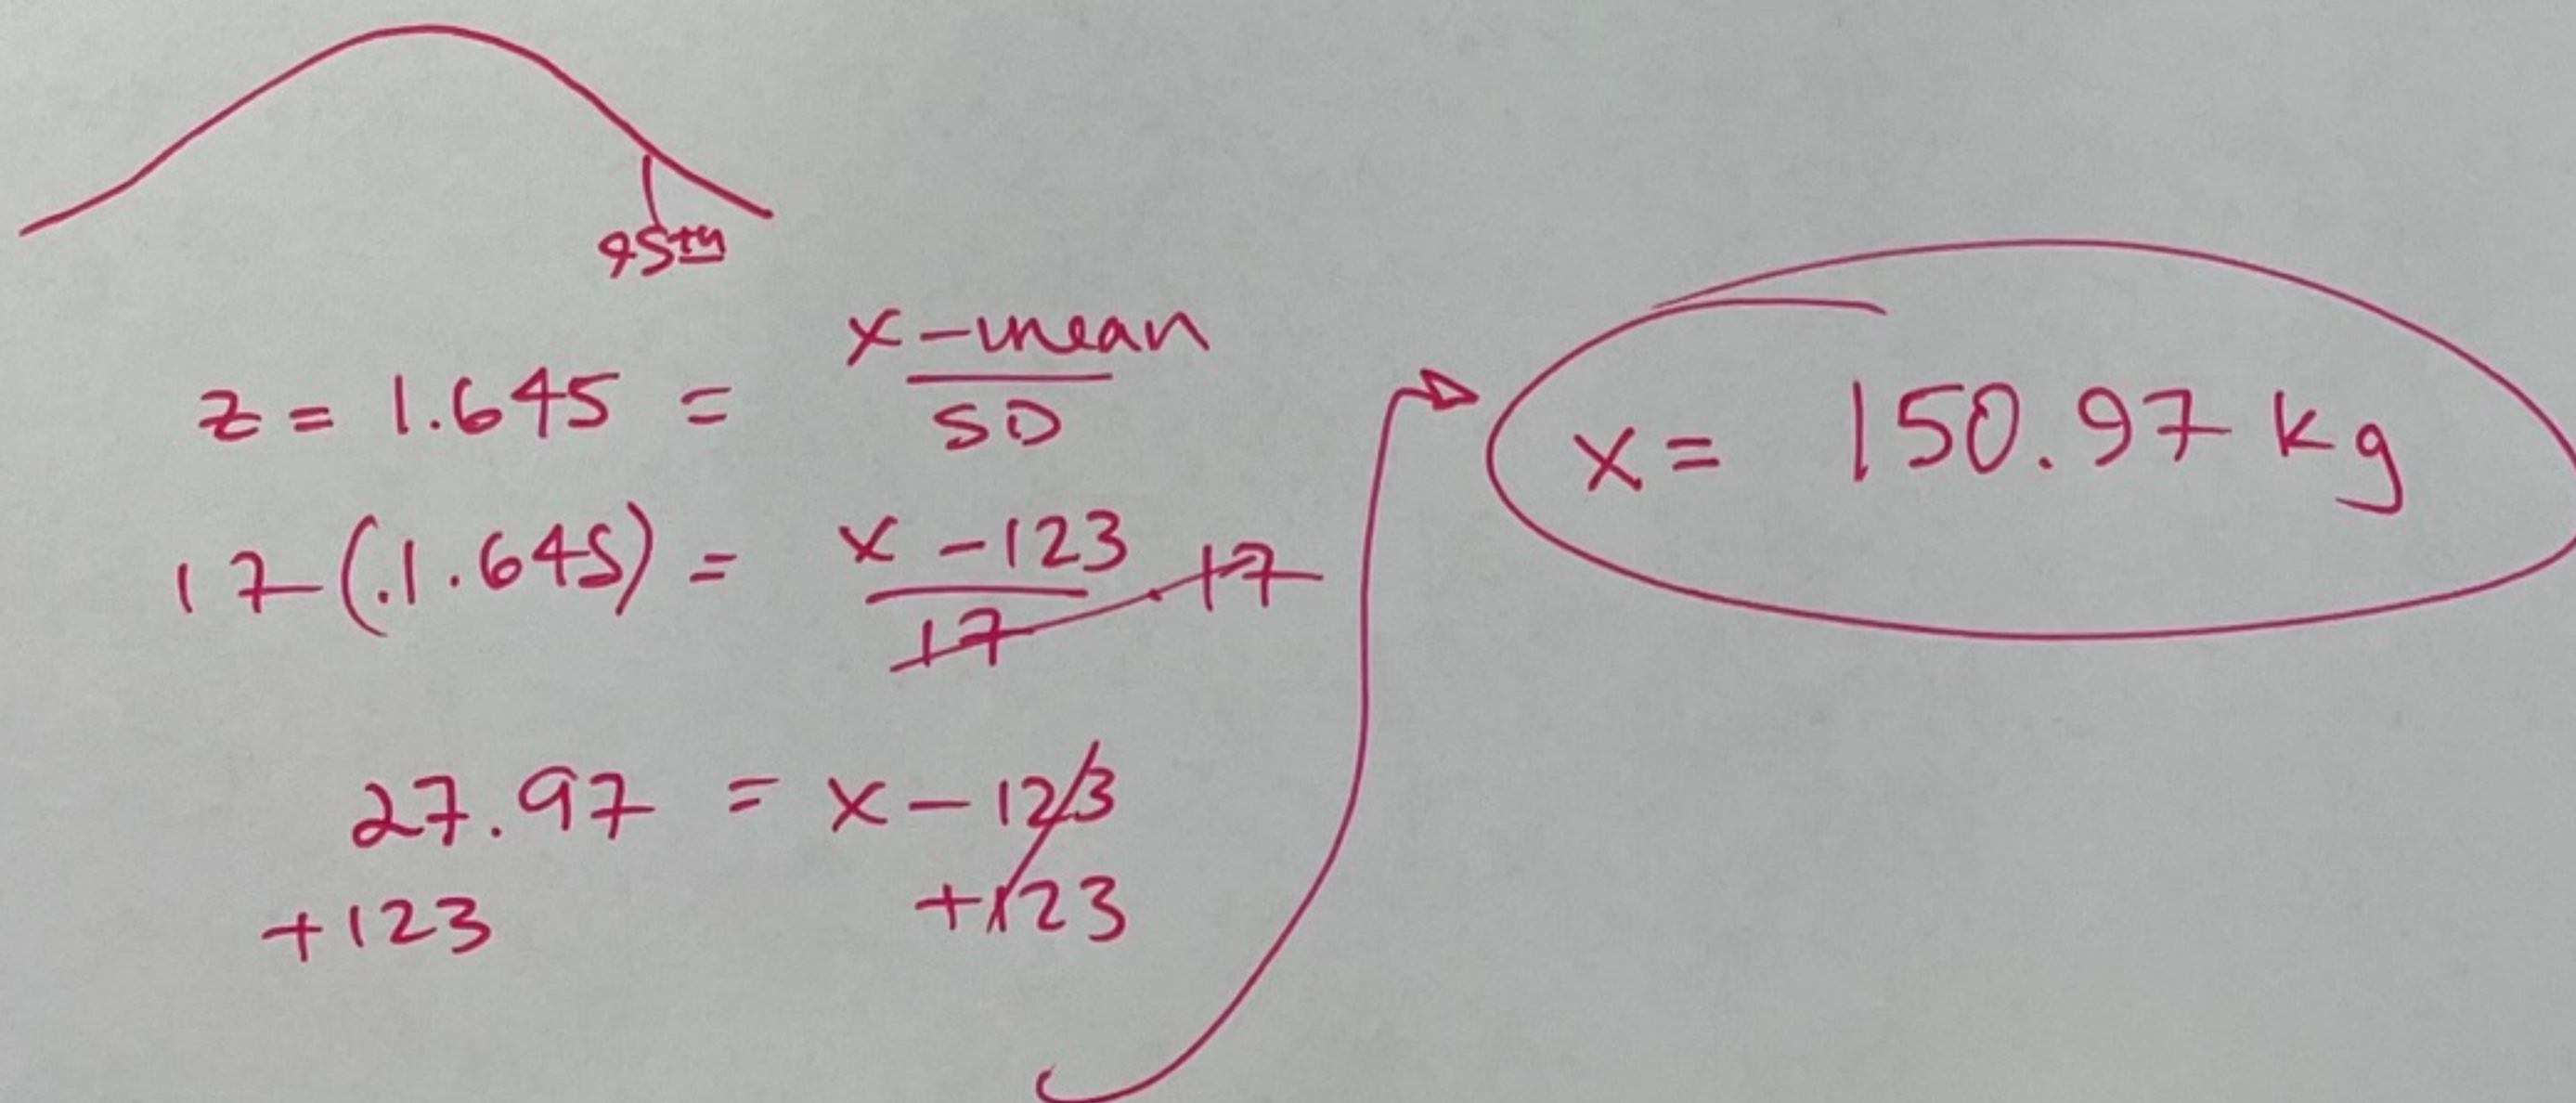 95th
z = 1.645 = x - mean / SD
17(.1.645) = x - 123 / 17 · 17
27.97 = x - 123
+123 +123
x = 150.97 kg